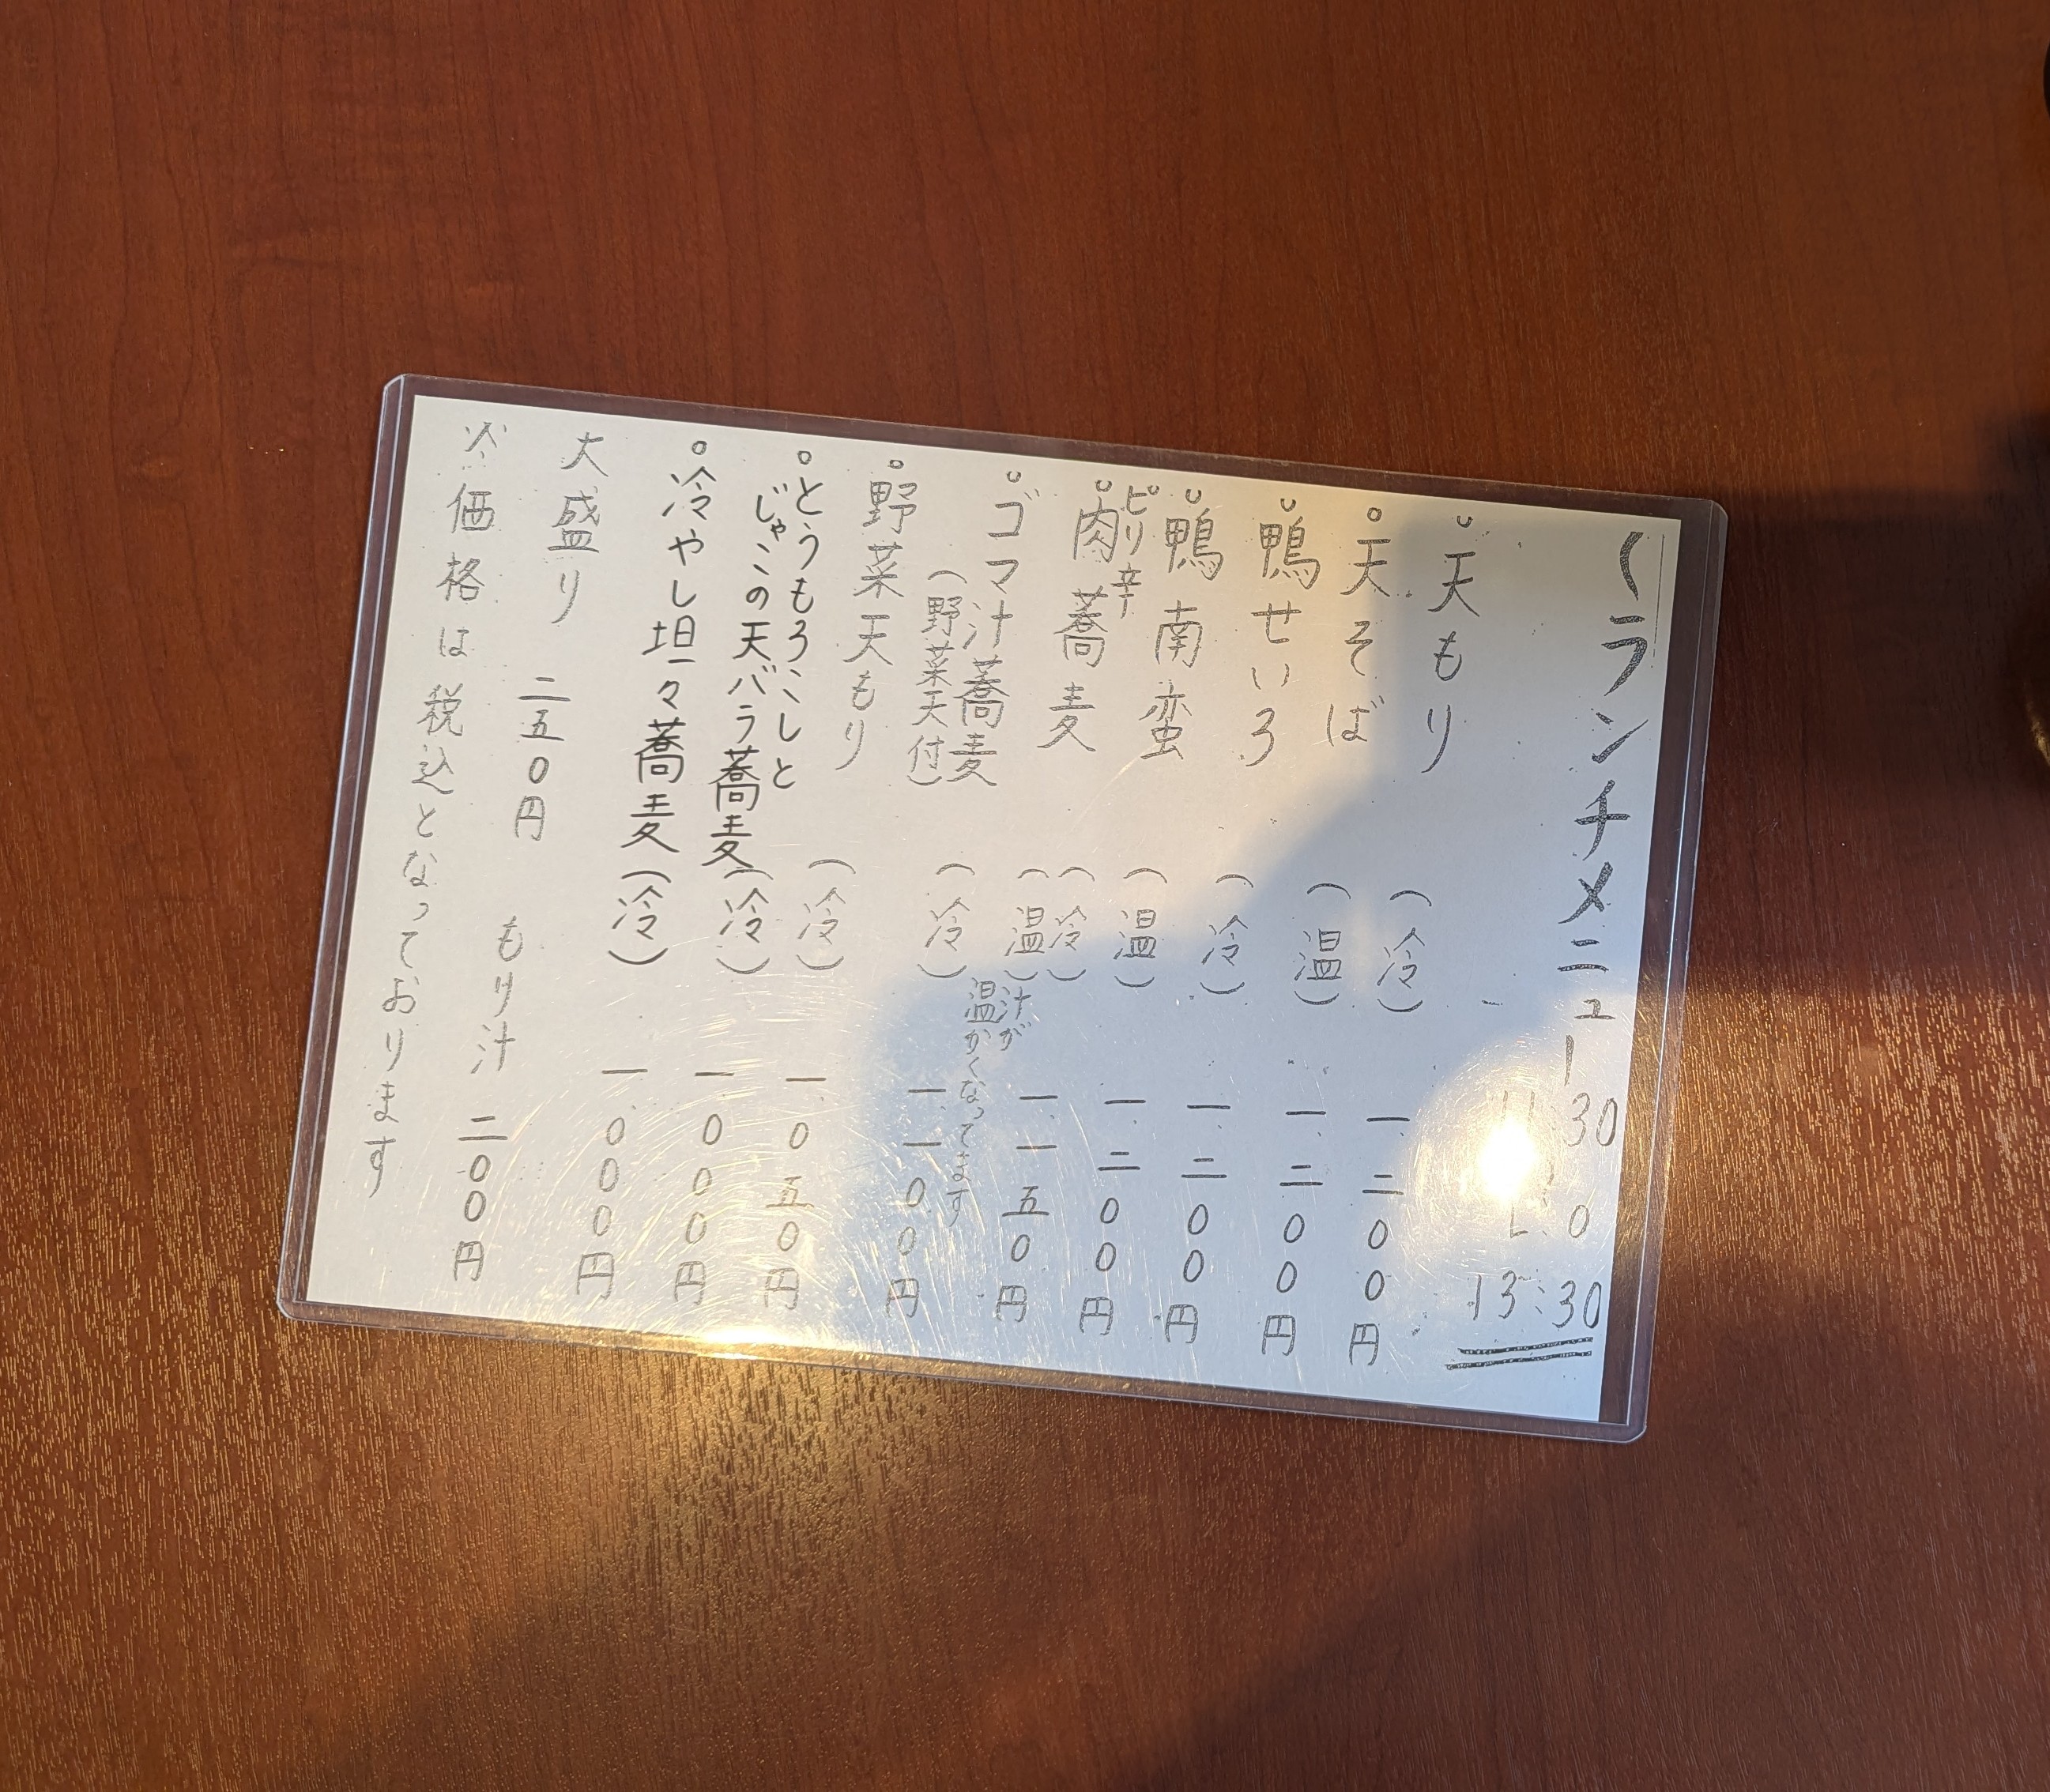 ランチメニュー 11:30
L.O 13:30
○天もり （冷） 一、二００円
○天そば （温） 一、二００円
○鴨せいろ （冷） 一、二００円
○鴨南蛮 （温） 一、二００円
○ピリ辛肉蕎麦 （冷）（温） 一、一五０円
○ゴマ汁蕎麦（野菜天付） （冷） 汁が温かくなってます 一、一００円
○野菜天もり （冷） 一、０五０円
○とうもろこしと
じゃこの天バラ蕎麦（冷） 一、０００円
○冷やし坦々蕎麦（冷） 一、０００円
大盛り 二五０円 もり汁 二００円
※価格は税込となっております